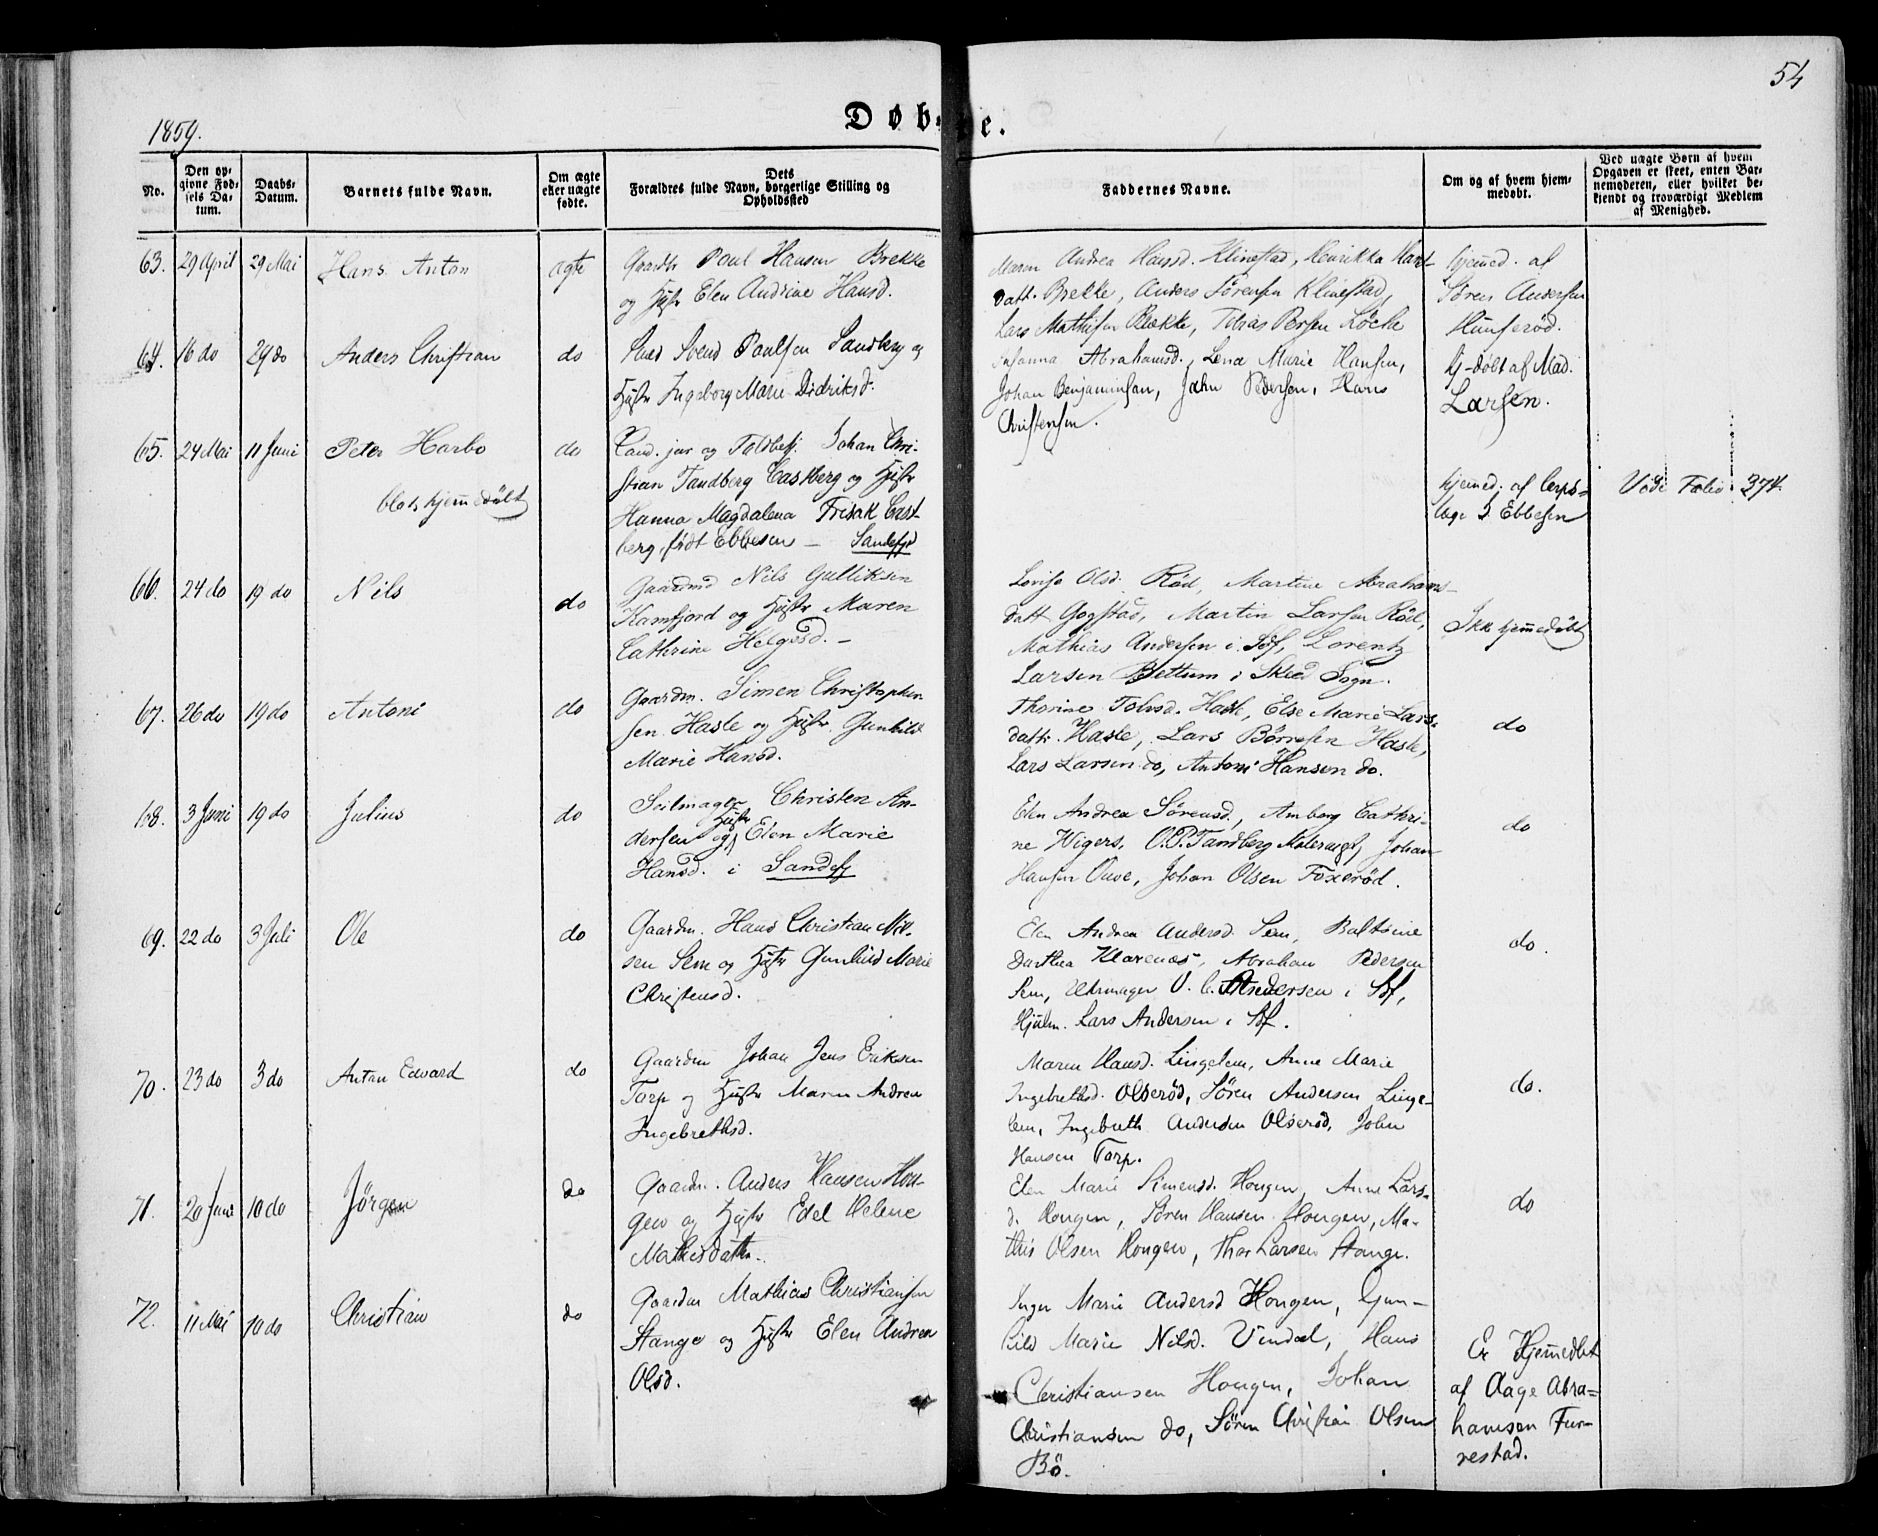 54
1859.
Døbte.
No.
Den opgivne Fødsels Datum.
Daabs-Datum.
Barnets fulde Navn.
Om ægte eller uægte fødte.
Dets Forældres fulde Navn, borgerlige Stilling og Opholdssted
Faddernes Navne.
Om og af hvem hjemmedøbt.
Ved uægte Børn af hvem Opgaven er skeet, enten Barnemoderen, eller hvilket bekjendt og troværdigt Medlem af Menighed.
63. 29 April 29 Mai Hans Anton ægte
Gaardbr Poul Hansen Brekke
og Hustr Elen Andrine Hansd.
Maren Andrea Hansd. Klinestad, Henrikka Hans-
datt. Brekke, Anders Sørensen Klinestad,
Lars Mathisen Bække, Tobias Persen Løcke
hjemmed. af
Søren Andersen
Hunserød.
64. 16 do 29 do Anders Christian do
Svend Paulsen Sandberg og
Hustr Ingeborg Marie Didriksd.
Abrahamsd., Lena Marie Hansen,
Johan Benjaminsen, John Pedersen, Hans
Christensen.
Hj-døbt af Mad.
Larsen.
65. 24 Mai 11 Juni Peter Harbo do
blot hjemmedøbt
Cand. jur og Toldbetj. Johan Chri-
stian Tandberg Castberg og Hustr
Hanna Magdalena Frisak Cast-
berg, født Ebbesen — Sandefjd
hjemmed. af Corps-
læge J Ebbesen
Vide Folio 374.
66. 24 do 19 do Nils do
Gaardmd Nils Gulliksen
Kamfjord og Hustr Maren
Cathrine Helgesd. —
Lovise Olsd. Rød, Martine Abrahams-
datt Gogstad, Martin Larsen Rød,
Mathias Andersen i Sdf, Lorentz
Larsen Bettum i Skeed Sogn.
Ikke hjemmedøbt
67. 26 do 19 do Antoni do
Gaardm. Simen Christophersen
Hasle og Hustr. Gunhild
Marie Hansd.
Thorine Tolvsd. Hasle, Else Marie Lars-
datt. Hasle, Lars Børresen Hasle,
Lars Larsen do, Antoni Hansen do.
do
68. 3 Juni 19 do Julius do
Seilmager Christen An-
dersen og Hustr Elen Marie
Hansd. i Sandefj
Elen Andrea Sørensd., Amborg Cathri-
ne Wigers, O.P. Tandberg, Johan
Hansen Ouve, Johan Olsen Foxerød.
do
69. 22 do 3 Juli Ole do
Gaardm. Hans Christian Nil-
sen Sem og Hustr Gunhild Marie
Christensd.
Elen Andrea Andersd. Sem, Baltsine
Darthea Klarenæs, Abraham Pedersen
Sem, Uhrmager O. C. Andersen i Sdf,
Hjulm. Lars Andersen i Sdf.
do.
70. 23 do 3 do Anton Edvard do
Gaardm Johan Jens Eriksen
Torp og Hustr Maren Andrea
Ingebrethsd.
Maren Hansd. Lingelem, Anne Marie
Ingebrethsd. Olserød, Søren Andersen Linge-
lem, Ingebreth Andersen Olserød, John
Hansen Torp.
do.
71. 20 Juni 10 do Jørgen do
Gaardm. Anders Hansen Hou-
gen og Hustr Edel Helene
Mathisdattr.
Elen Marie Simensd. Hougen, Anne Lars-
d. Hougen, Søren Hansen Hougen, Ma-
this Olsen Hougen, Thor Larsen Stange.
do
72. 11 Mai 10 do Christian do
Gaardm Mathias Christiansen
Stange og Hustr Elen Andrea
Olsd.
Inger Marie Andersd Hougen, Gun-
hild Marie Nilsd. Vindal, Hans
Christiansen Hougen, Johan
Christiansen do, Søren Christian Olsen
Bø.
Er Hjemmedbt
af Aage Abra-
hamsen Fur-
restad.